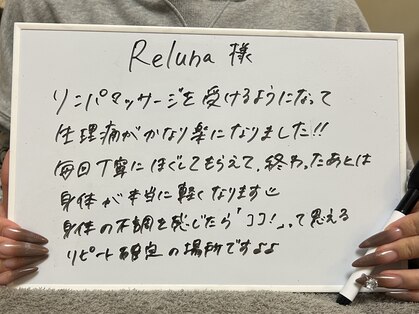 Reluna 様
リンパマッサージを受けるようになって
生理痛がかなり楽になりました!!
毎回丁寧にほぐしてもらえて、終わったあとは
身体が本当に軽くなります
身体の不調を感じたら「ココ!」って思える
リピート確定の場所ですよよ